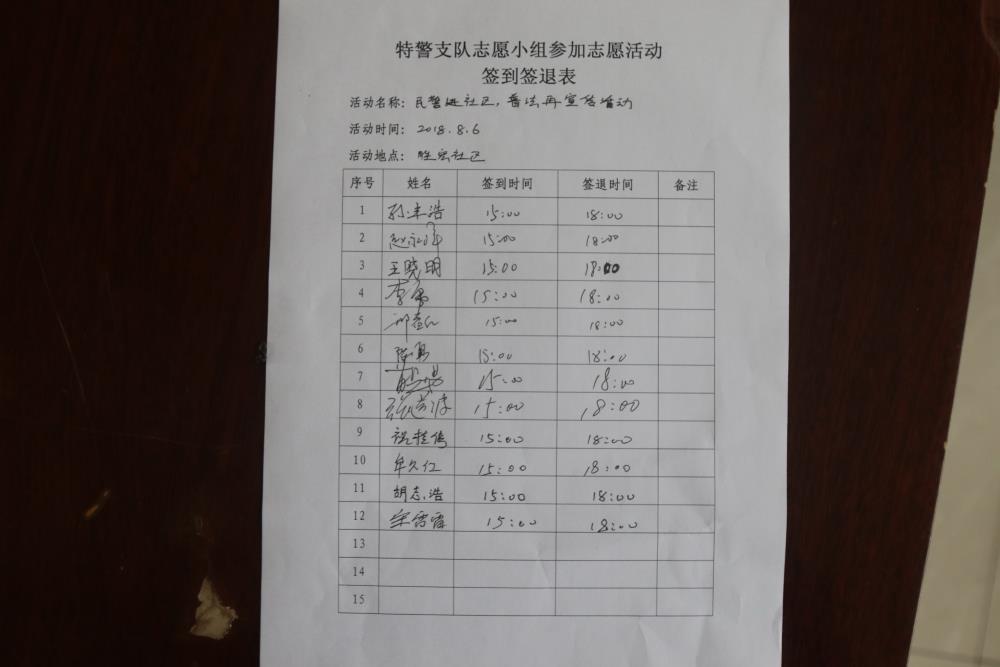 特警支队志愿小组参加志愿活动
签到签退表
活动名称：民警进社区，普法再宣传活动
活动时间：2018.8.6
活动地点：胜宏社区
序号 姓名 签到时间 签退时间 备注
1 孙丰浩 15:00 18:00
2 15:00 18:00
3 王晓明 15:00 18:00
4 李 15:00 18:00
5 15:00 18:00
6 15:00 18:00
7 15:00 18:00
8 15:00 18:00
9 15:00 18:00
10 牟久仁 15:00 18:00
11 胡志浩 15:00 18:00
12 宋雪雷 15:00 18:00
13
14
15